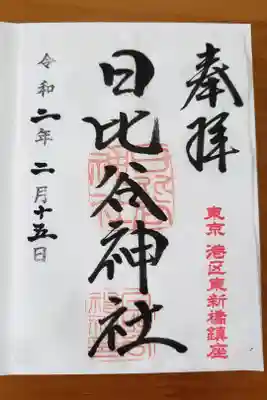 奉拝
東京 港区東新橋鎮座
日比谷神社
令和二年二月十五日